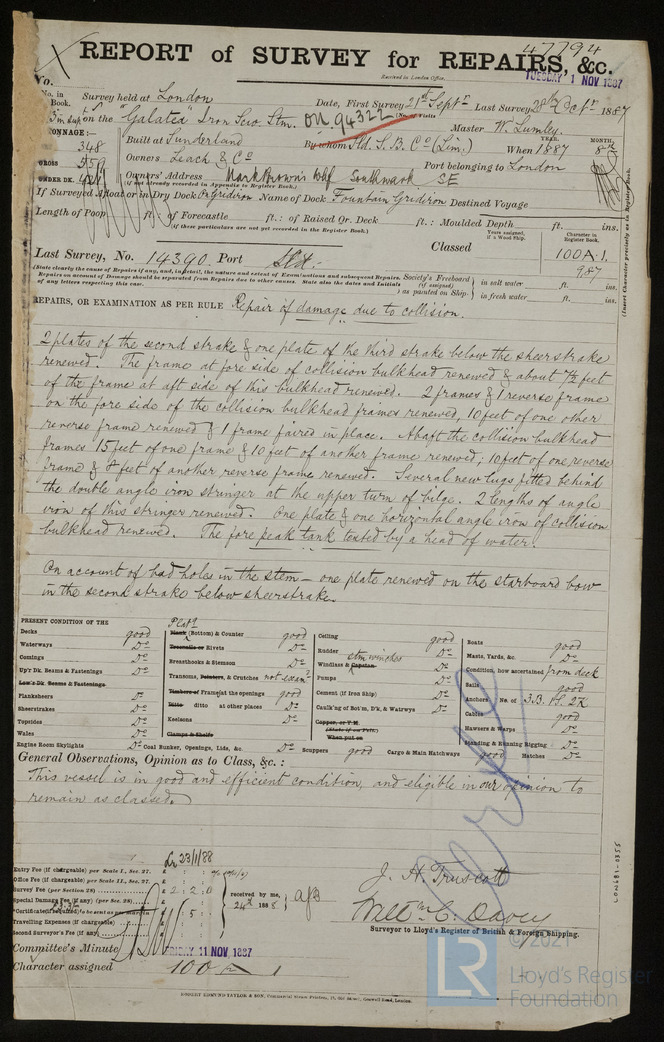 47794
REPORT of SURVEY for REPAIRS, &c.
Received in London Office, TUESDAY 1 NOV 1887
No.
No. in Book. Survey held at London Date, First Survey 21st Septr Last Survey 28th Octr 1887
(No. of Visits
on the "Galatea" Iron Screw Stm. ON. 94322 Master W. Lumley.
TONNAGE:—
348 Built at Sunderland By whom Sld. S. B. Co (Lim.) When 1887
YEAR. MONTH.
GROSS 559 Owners Leach & Co Port belonging to London
UNDER DK. Owners' Address Mark Browns Whf Southwark SE
(if not already recorded in Appendix to Register Book.)
If Surveyed Afloat or in Dry Dock On Gridiron Name of Dock Fountain Gridiron Destined Voyage
Length of Poop ft. : of Forecastle ft. : of Raised Qr. Deck ft. : Moulded Depth ft. ins.
(if these particulars are not yet recorded in the Register Book.)
Last Survey, No. 14390. Port Sld. Classed
Character in Register Book.
100A.1.
9,87
(Insert Character precisely as in Register Book)
(State clearly the cause of Repairs if any, and, in detail, the nature and extent of Examinations and subsequent Repairs.
Repairs on account of Damage should be separated from Repairs due to other causes. State also the dates and Initials
of any letters respecting this case.
Society's Freeboard (if assigned) as painted on Ship in salt water ft. ins.
in fresh water ft. ins.
REPAIRS, OR EXAMINATION AS PER RULE Repair of damage due to collision.
2 plates of the second strake & one plate of the third strake below the sheerstrake
renewed. The frame at fore side of collision bulkhead renewed & about 7½ feet
of the frame at aft side of this bulkhead renewed. 2 frames & 1 reverse frame
on the fore side of the collision bulkhead frames renewed, 10 feet of one other
reverse frame renewed & 1 frame faired in place. Abaft the collision bulkhead
frames 15 feet of one frame & 10 feet of another frame renewed; 10 feet of one reverse
frame & 8 feet of another reverse frame renewed. Several new lugs fitted behind
the double angle iron stringer at the upper turn of bilge. 2 lengths of angle
iron of this stringer renewed. One plate & one horizontal angle iron of collision
bulkhead renewed. The fore peak tank tested by a head of water.
On account of bad holes in the stem — one plate renewed on the starboard bow
in the second strake below sheerstrake.
PRESENT CONDITION OF THE
Decks good
Waterways Do
Comings Do
Up'r Dk. Beams & Fastenings Do
Low'r Dk. Beams & Fastenings
Planksheers Do
Sheerstrakes Do
Topsides Do
Wales Do
Engine Room Skylights Do
Plat'g
Plank (Bottom) & Counter good
Treenails or Rivets Do
Breasthooks & Stemson Do
Transoms, Pointers, & Crutches not examd
Timbers or Frames at the openings good
Ditto ditto at other places Do
Keelsons Do
Clamps & Shelfs
Coal Bunker, Openings, Lids, &c. Do
Ceiling good
Rudder Do
Windlass & Capstan stm winches Do
Pumps Do
Cement (if Iron Ship) Do
Caulk'ng of Bot'm, D'k, & Watrwys Do
Copper, or Y.M.
(State if on Felt)
When put on
Scuppers good Cargo & Main Hatchways good Hatches Do
Boats good
Masts, Yards, &c. Do
Condition, how ascertained from deck
Sails good
Anchors No. of 3.B. 1S. 2K
Cables good
Hawsers & Warps Do
Standing & Running Rigging Do
General Observations, Opinion as to Class, &c. :
This vessel is in good and efficient condition, and eligible in our opinion to
remain as classed.
23/1/88
Entry Fee (if chargeable) per Scale I., Sec. 27.
Office Fee (if chargeable) per Scale II., Sec. 27.
Survey Fee (per Section 28) £ 2 : 2 : 0
Special Damage Fee (if any) (per Sec. 28)
Certificate (if required) to be sent as per margin : 5 :
Travelling Expenses (if chargeable) £
Second Surveyor's Fee (if any) £
received by me,
24th 1888
J. H. Truscott
Willm C. Davey
Surveyor to Lloyd's Register of British & Foreign Shipping.
Committee's Minute FRIDAY 11 NOV 1887
Character assigned 100 A 1
ROBERT EDMUND TAYLOR & SON, Commercial Steam Printers, 19, Old Street, Goswell Road, London.
LON681-0355
© 2021
LR
Lloyd's Register
Foundation